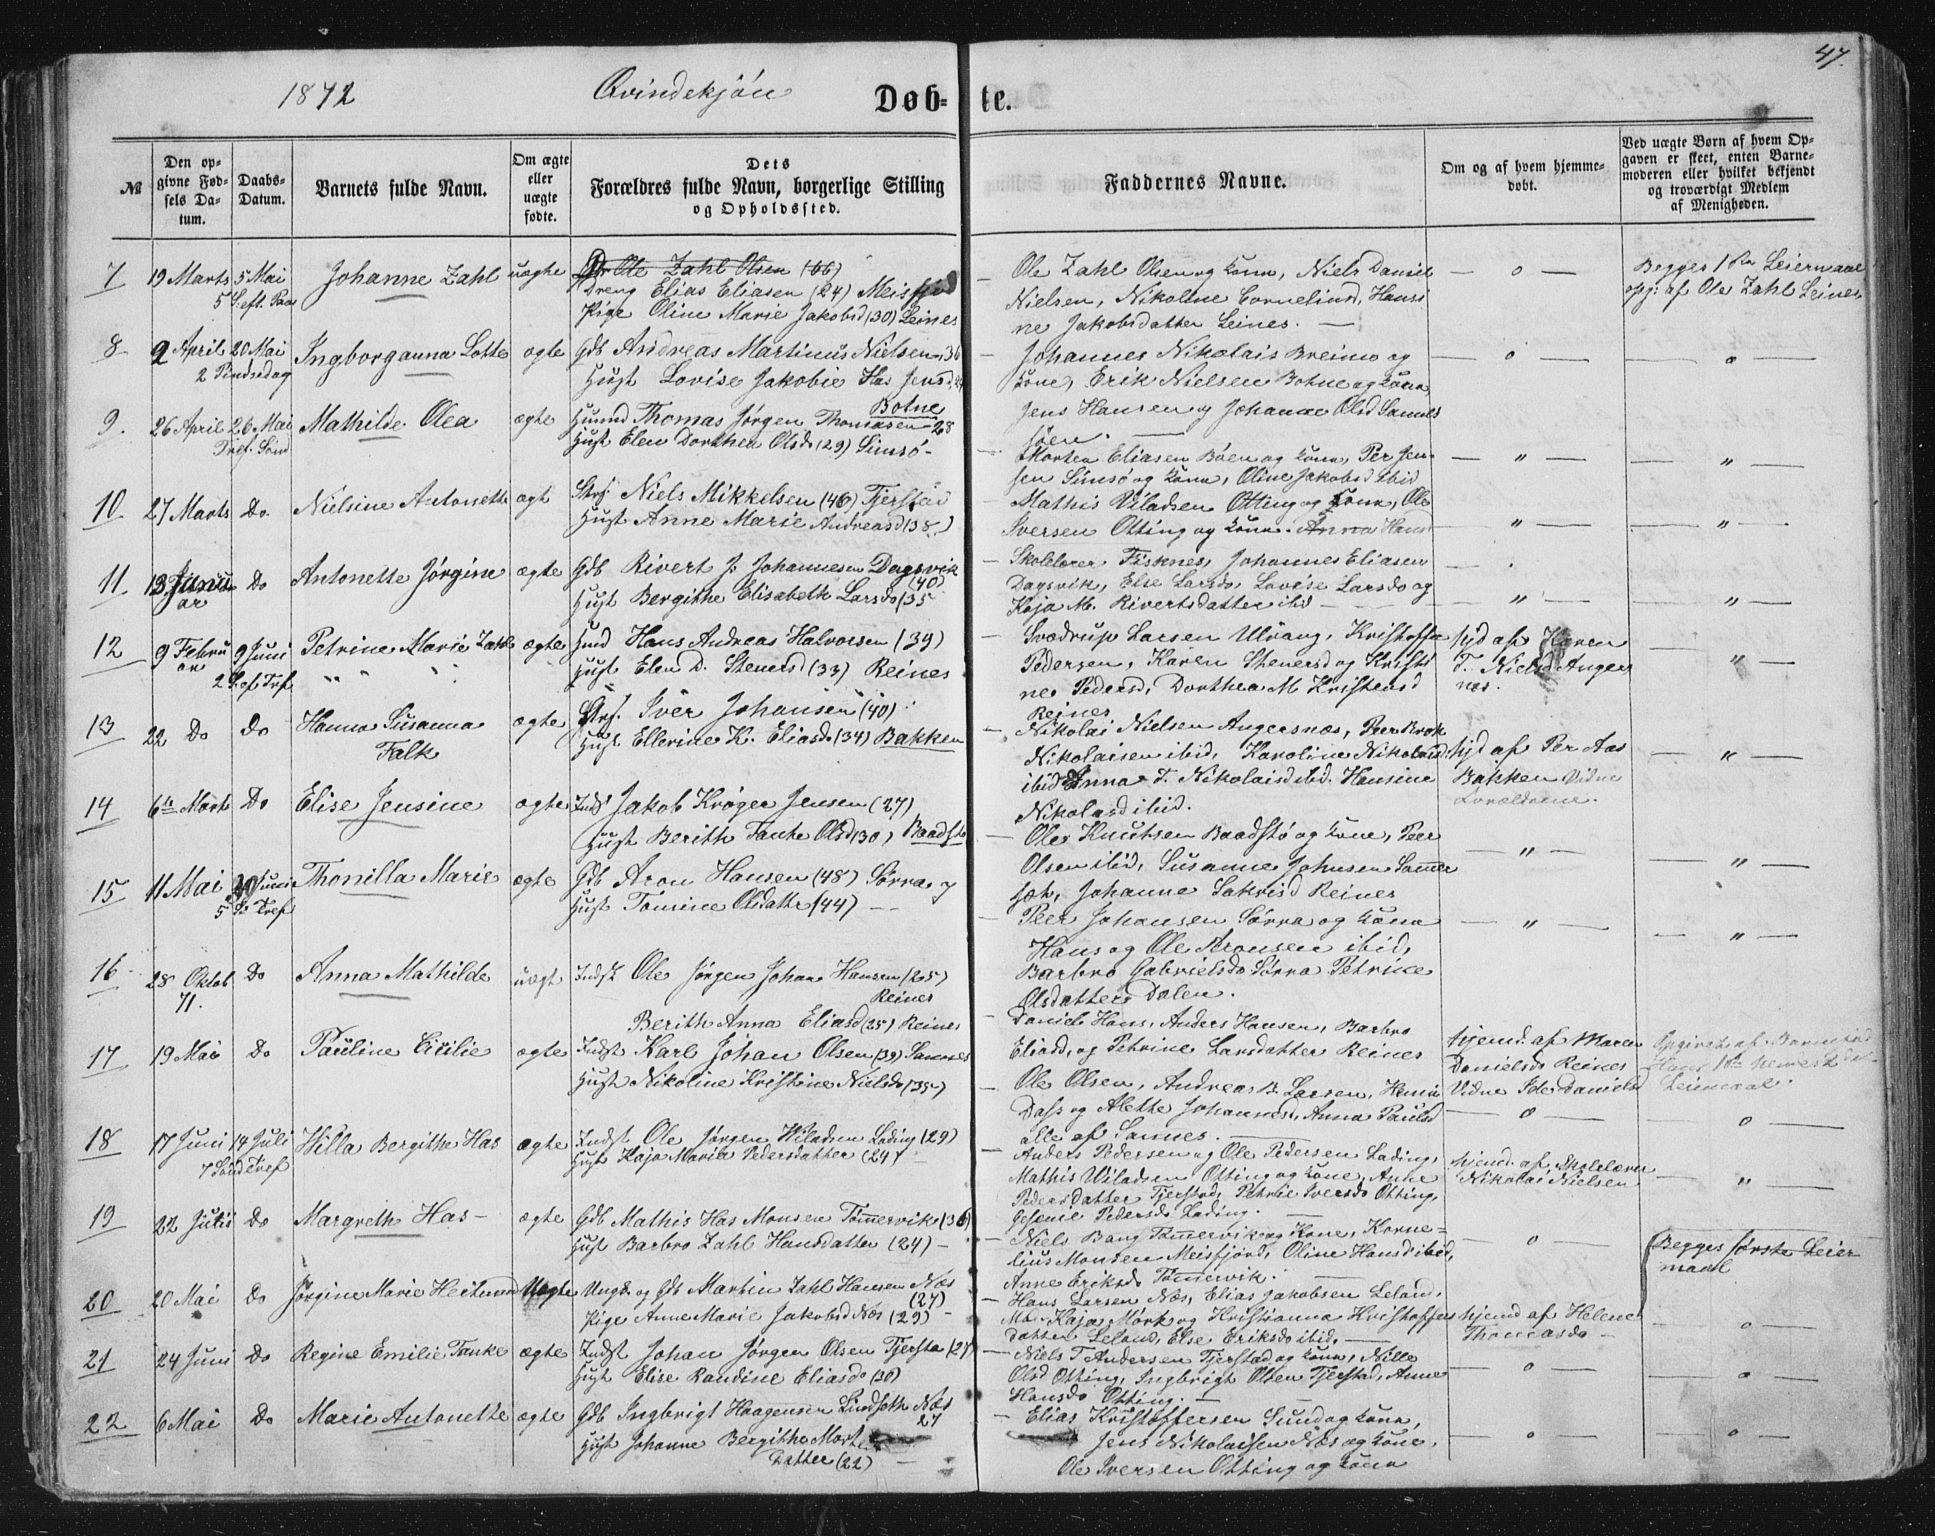 47.
1872 Qvindekjön Døb- te.
№
Den op-
givne Fød-
sels Da-
tum.
Daabs-
Datum.
Barnets fulde Navn.
Om ægte
eller
uægte
fødte.
Dets
Forældres fulde Navn, borgerlige Stilling
og Opholdssted.
Faddernes Navne.
Om og af hvem hjemme-
døbt.
Ved uægte Børn af hvem Op-
gaven er skeet, enten Barne-
moderen eller hvilket bekjendt
og troværdigt Medlem
af Menigheden.
7 19 Marts 5 Mai Johanne Zahl uægte
Ole Zahl Olsen (66)
Dreng Elias Eliasen (24) Meisfjo
Pige Oline Marie Jakobsd (30) Leines
Ole Zahl Olsen og kone, Niels Daniel
Nielsen, Nikoline Corneliusd, Hansi
ne Jakobsdatter Leines. —
— o —
Begges 1ste Leiermaal
opg: af Ole Zahl Leines
8 2 April 20 Mai Ingborganna Lotte ægte
2 Pindsedag
Gdb Andreas Martinus Nielsen 36
Hust Lovise Jakobie Has Jensd
Botne
Johannes Nikolais Breimo og
kone, Erik Nielsen Botne og kone
Jens Hansen og Johanne Olsd Sannes
söen. —
— o —
— o —
9. 26 April 26 Mai Mathilde Olea ægte
Tref. Sönd
Huusmd Thomas Jørgen Thomasen 28
Hust Elen Dorthea Olsd (29) Simsö -
Morten Eliasen Böen og kone, Per Jen-
sen Simsö og kone, Oline Jakobsd ibid
— " —
— " —
10 27 Marts Do. Nielsine Antonette ægt
Strf Niels Mikkelsen (46) Tjerstad
Hust Anne Marie Andreasd (38)
Mathis Viladsen Otting og kone, Ole
Iversen Otting og kone. Anna Hans
— " —
— " —
11. 13 Janu Do Antonette Jørgine ægte
ar
Gdb Rivert J. Johannesen Dagsvik
(40)
Hust Bergithe Elisabeth Larsd (35
Skolelærer Fisknes, Johannes Eliasen
Dagsvik, Else Larsd, Lovise Larsdo og
Kaja M. Rivertsdatter ibid — —
— " —
— " —
12 9 Febru 9 Juni Petrine Marie Zahl ægte
ar
2 S. ef. Tref.
Hmd Hans Andreas Halvorsen (39)
Hust Elen D. Stenersd (33) Reines
Sverdrup Larsen Ulvang, Kristoffer
Pedersen, Karen Stenersd og Kristi
ne Pedersd, Dorthea M Kristensd
Reines
hjd af Karen
T. Nielsd Anger
nes.
— " —
13 22 Do Do Hanna Susanna ægte
Falk
Strf. Iver Johansen (40)
Hust Ellerine K. Eliasd (34) Bakken
Nikolai Nielsen Angersnæs, Peer Krok
Nikolaisen ibid, Karoline Nikolaisd
ibid Anna T. Nikolaisd ibid. Hansine
Nikolaisd ibid.
hjd af Per Aas
Bakken Vidne
Forældrene.
— " —
14 6te Marts Do Elise Jensine ægte
Inds Jakob Krøger Jensen (27)
Hust Berith Tanke Olsd (30) Baadstö
Ole Knutsen Baadstö og kone, Peer
Olsen ibid, Susanne Johnsen Sømer
— " —
— " —
15 11 Mai 30 Juni Thonilla Marie ægte
5 S. Tref
Gdb Aron Hansen (48) Sörra
Hust Tomine Olsdatter (44) — —
Peer Johansen Sörra og kone
Hans og Ole Aronsen ibid,
Barbro Gabrielsdo Sörra Petrine
Olsdatter Dalen.
— " —
— " —
16 28 Oktob Do Anna Mathilde uægt
71.
Indst Ole Jørgen Johan Hansen (25)
Reines
Berith Anna Eliasd (25) Reines
Daniel Hans, Anders Hansen, Barbro
Eliasd, og Petrine Larsdatter Reines
hjemd. af Maren
Danielsd Reines
Vidne Ide Danielsd
Leiermaal.
17 19 Mai Do Pauline Cicilie ægte
Indst Karl Johan Olsen (39) Sannes
Hust Nikoline Kristine Nielsd (35)
Ole Olsen, Andreas B. Larsen, Hemin
Dass og Alette Johannes, Anna Paulsd
alle af Sannes. —
— o —
— o —
18 17 Juni 14 Juli Hilla Bergithe Has ægte
7 Sönd Tref
Indst Ole Jørgen Wiladsen Lading (29)
Hust Kaja Maria Pedersdatter (24)
Anders Pedersen og Ole Pedersen Lading,
Mathis Viladsen Otting og kone, Anne
Pedersdatter Tjerstad, Petrie Iversdo Otting,
Gesenie Pedersd Lading. —
hjemd. af Skolelærer
Nikolai Nielsen
— " —
19 22 Juli Do Margreth Has - ægte
Gdb Mathis Has Monsen Tömervik (36)
Hust Barbro Zahl Hansdatter (24) -
Niels Bang Tömervik og Kone, Korne-
lius Monsen Meisfjord, Oline Hansd ibid,
Anne Eriksd Tömervik. —
— o —
Begges første Leier
maal
20 20 Mai Do Jørgine Marie Heitmand Uægte
Ungk. og Gdb Martin Zahl Hansen Næs
(27)
Pige Anne Marie Jakobsd Næs (29) -
Hans Larsen Næs, Elias Jakobsen Leland,
Md. Kaja Mørk og Kristianna Kristoffers
datter Leland, Else Eriksdo ibid. —
hjemd af Helene
Thomasdo -
— o —
21 24 Juni Do Regine Emilie Tanke ægte
Indst Johan Jørgen Olsen Tjersta (27)
Hust Elise Randine Eliasdo (30)
Niels T Andersen Tjerstad og kone, Nille
Olsd Otting, Ingbrigt Olsen Tjerstad, Anne
Hansdo Otting. —
— o —
— o —
22 6 Mai Do Marie Antonette ægte
Gdb Ingbrigt Haagensen Lindseth Næs
27
Hust Johanne Bergitthe Mort
Datter (22) —
Elias Kristoffersen Sund og kone,
Jens Nikolaisen Næs og kone,
Ole Iversen Otting og kone
— o —
— o —